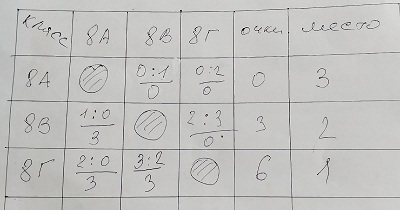 Класс 8А 8В 8Г очки место
8А 0:1/0 0:2/0 0 3
8В 1:0/3 2:3/0 3 2
8Г 2:0/3 3:2/3 6 1